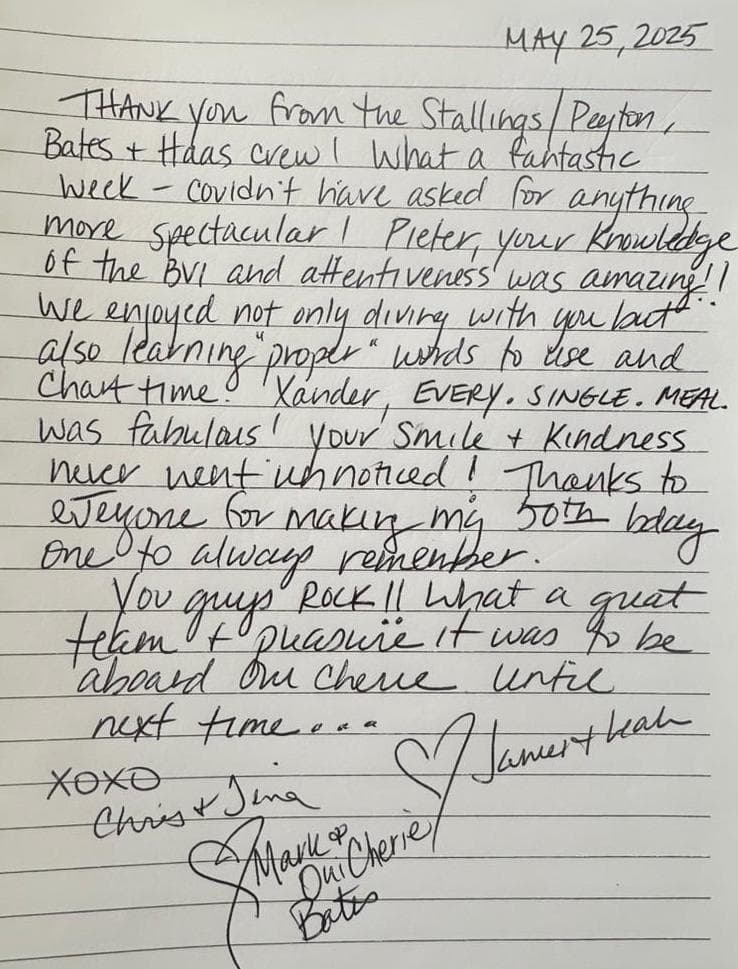 MAY 25, 2025
THANK you from the Stallings/Peyton,
Bates + Haas crew! What a fantastic
week - couldn't have asked for anything
more spectacular! Pieter, your knowledge
of the BVI and attentiveness was amazing!!
We enjoyed not only diving with you but
also learning "proper" words to use and
Chart time! Xander, EVERY. SINGLE. MEAL.
was fabulous! Your smile + kindness
never went unnoticed! Thanks to
everyone for making my 50th bday
one to always remember.
You guys ROCK!! What a great
team + pleasure it was to be
aboard Oui Cherie until
next time...
XOXO
Chris + Jina
James + Leah
Mark &
Oui Cherie
Bates